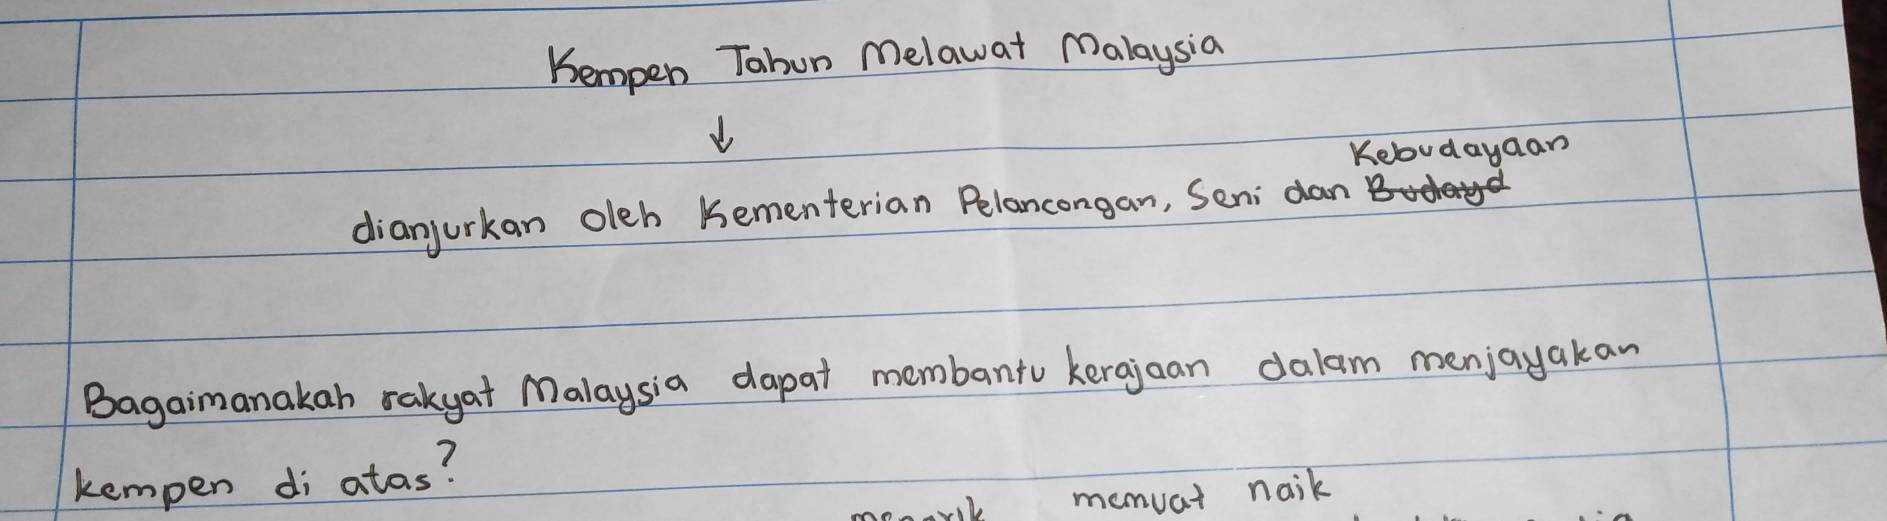 Kempen Tahun Melawat Malaysia
↓
Kebudayaan
dianjurkan oleh Kementerian Pelancongan, Seni dan Budaya
Bagaimanakah rakyat Malaysia dapat membantu kerajaan dalam menjayakan
kempen di atas?
menarik memuat naik